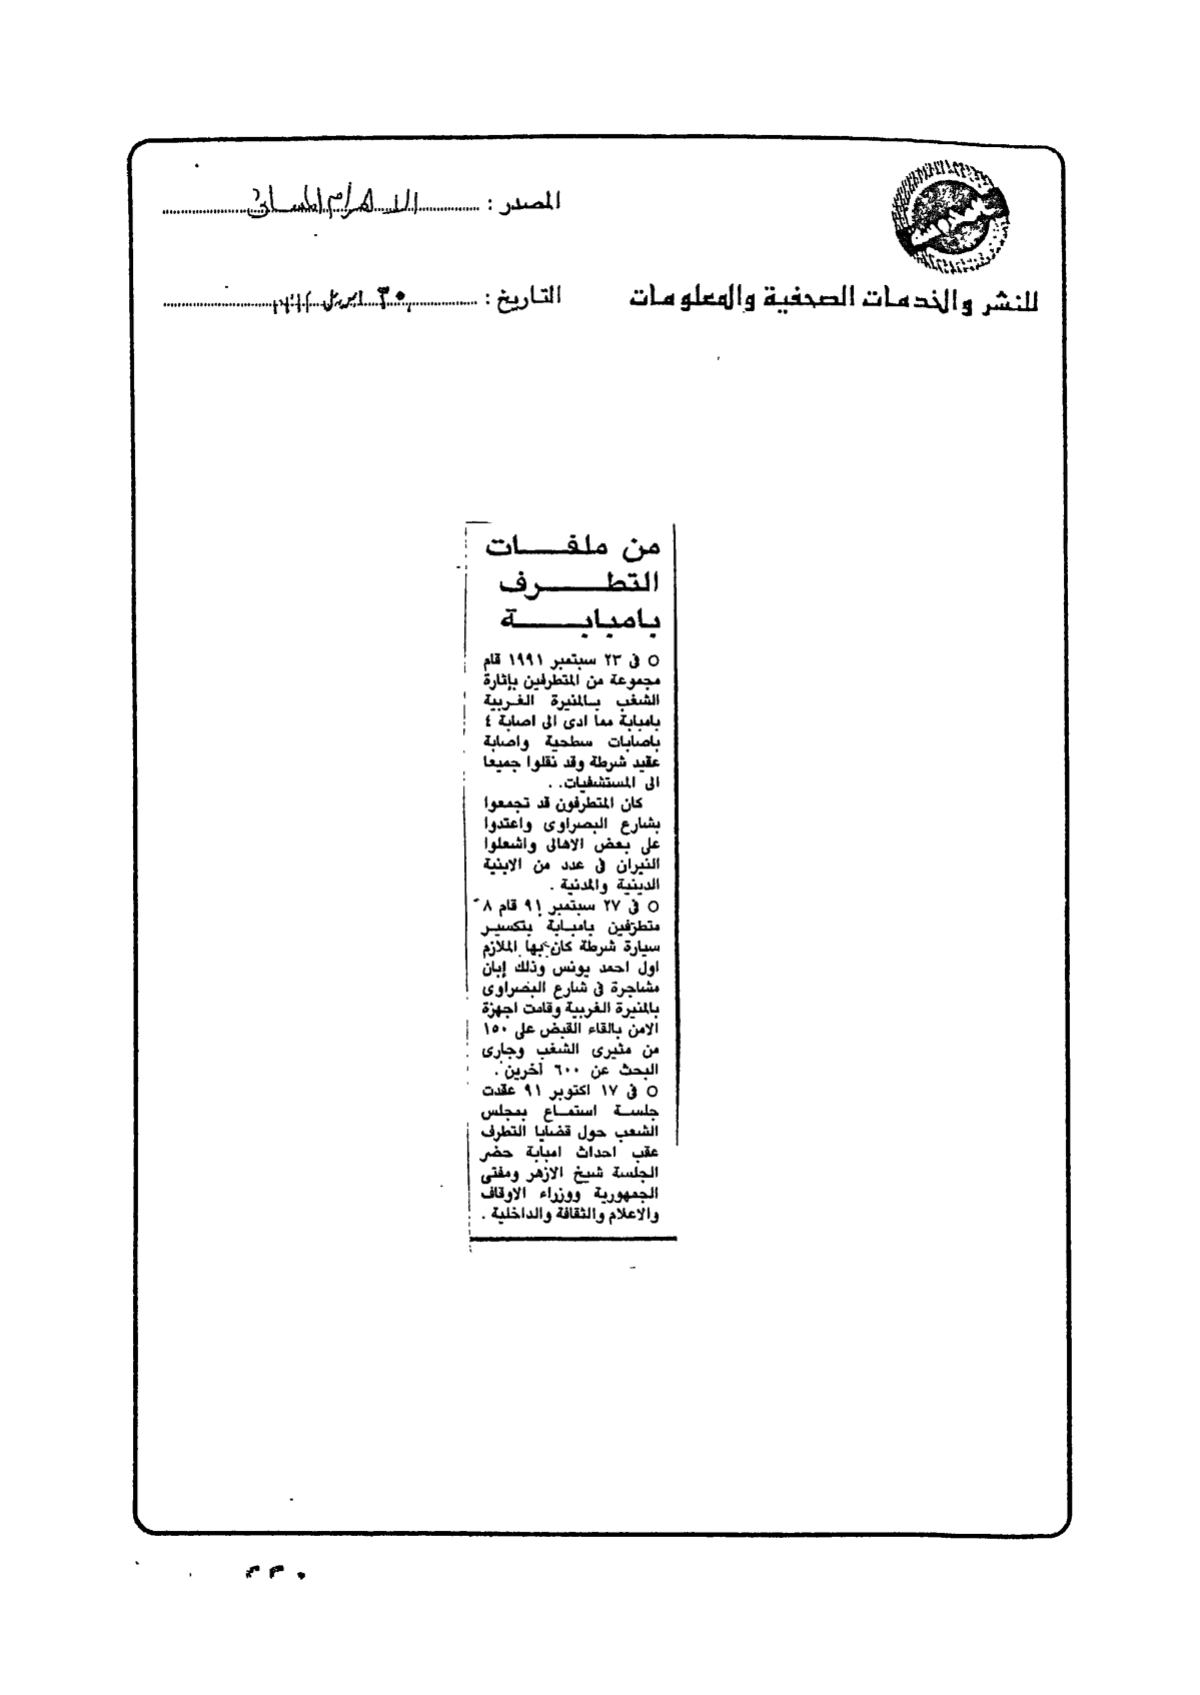 المصدر : الاهرام المسائى
للنشر والخدمات الصحفية والمعلومات
التاريخ : ٣٠ ابريل
من ملفـــات
التطـــــرف
بامبابـــــة
○ فى ٢٣ سبتمبر ١٩٩١ قام
مجموعة من المتطرفين بإثارة
الشغب بــالمنيرة الغـربية
بامبابة مما ادى الى اصابة ٤
باصابات سطحية واصابة
عقيد شرطة وقد نقلوا جميعا
الى المستشفيات. .
كان المتطرفون قد تجمعوا
بشارع البصراوى واعتدوا
على بعض الاهالى واشعلوا
النيران فى عدد من الابنية
الدينية والمدنية .
○ فى ٢٧ سبتمبر ٩١ قام ٨
متطرفين بامبـابة بتكسيـر
سيارة شرطة كان بها الملازم
اول احمد يونس وذلك إبان
مشاجرة فى شارع البصراوى
بالمنيرة الغربية وقامت اجهزة
الامن بالقاء القبض على ١٥٠
من مثيرى الشغب وجارى
البحث عن ٦٠٠ آخرين .
○ فى ١٧ اكتوبر ٩١ عقدت
جلســة استمــاع بمجلس
الشعب حول قضايا التطرف
عقب احداث امبابة حضر
الجلسة شيخ الازهر ومفتى
الجمهورية ووزراء الاوقاف
والاعلام والثقافة والداخلية .